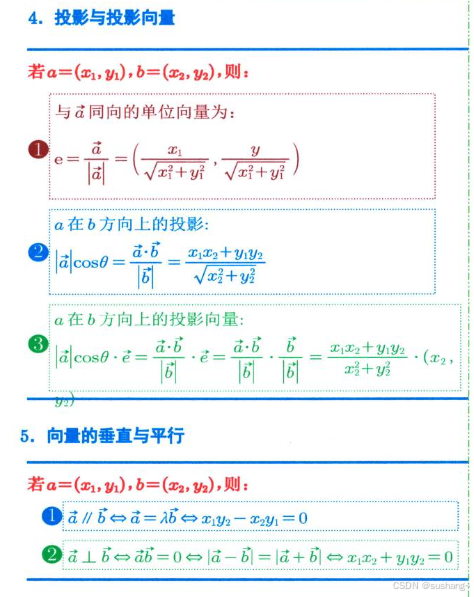 4. 投影与投影向量
若a=(x₁,y₁),b=(x₂,y₂),则:
与 a⃗ 同向的单位向量为:
① e = a⃗/|a⃗| = (x₁/√(x₁²+y₁²), y/√(x₁²+y₁²))
a 在 b 方向上的投影:
② |a⃗|cosθ = a⃗·b⃗/|b⃗| = (x₁x₂+y₁y₂)/√(x₂²+y₂²)
a 在 b 方向上的投影向量:
③ |a⃗|cosθ·e⃗ = a⃗·b⃗/|b⃗| · e⃗ = a⃗·b⃗/|b⃗| · b⃗/|b⃗| = (x₁x₂+y₁y₂)/(x₂²+y₂²) · (x₂,
y₂)
5. 向量的垂直与平行
若a=(x₁,y₁),b=(x₂,y₂),则:
① a⃗ // b⃗ ⇔ a⃗=λb⃗ ⇔ x₁y₂−x₂y₁=0
② a⃗ ⊥ b⃗ ⇔ a⃗b⃗=0 ⇔ |a⃗−b⃗|=|a⃗+b⃗| ⇔ x₁x₂+y₁y₂=0
CSDN @sushang